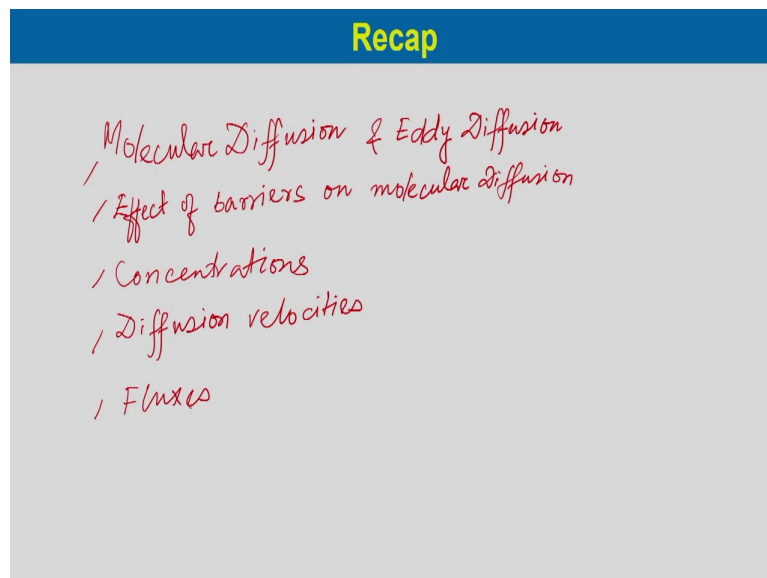 Recap
Molecular Diffusion & Eddy Diffusion
Effect of barriers on molecular Diffusion
Concentrations
Diffusion velocities
Fluxes